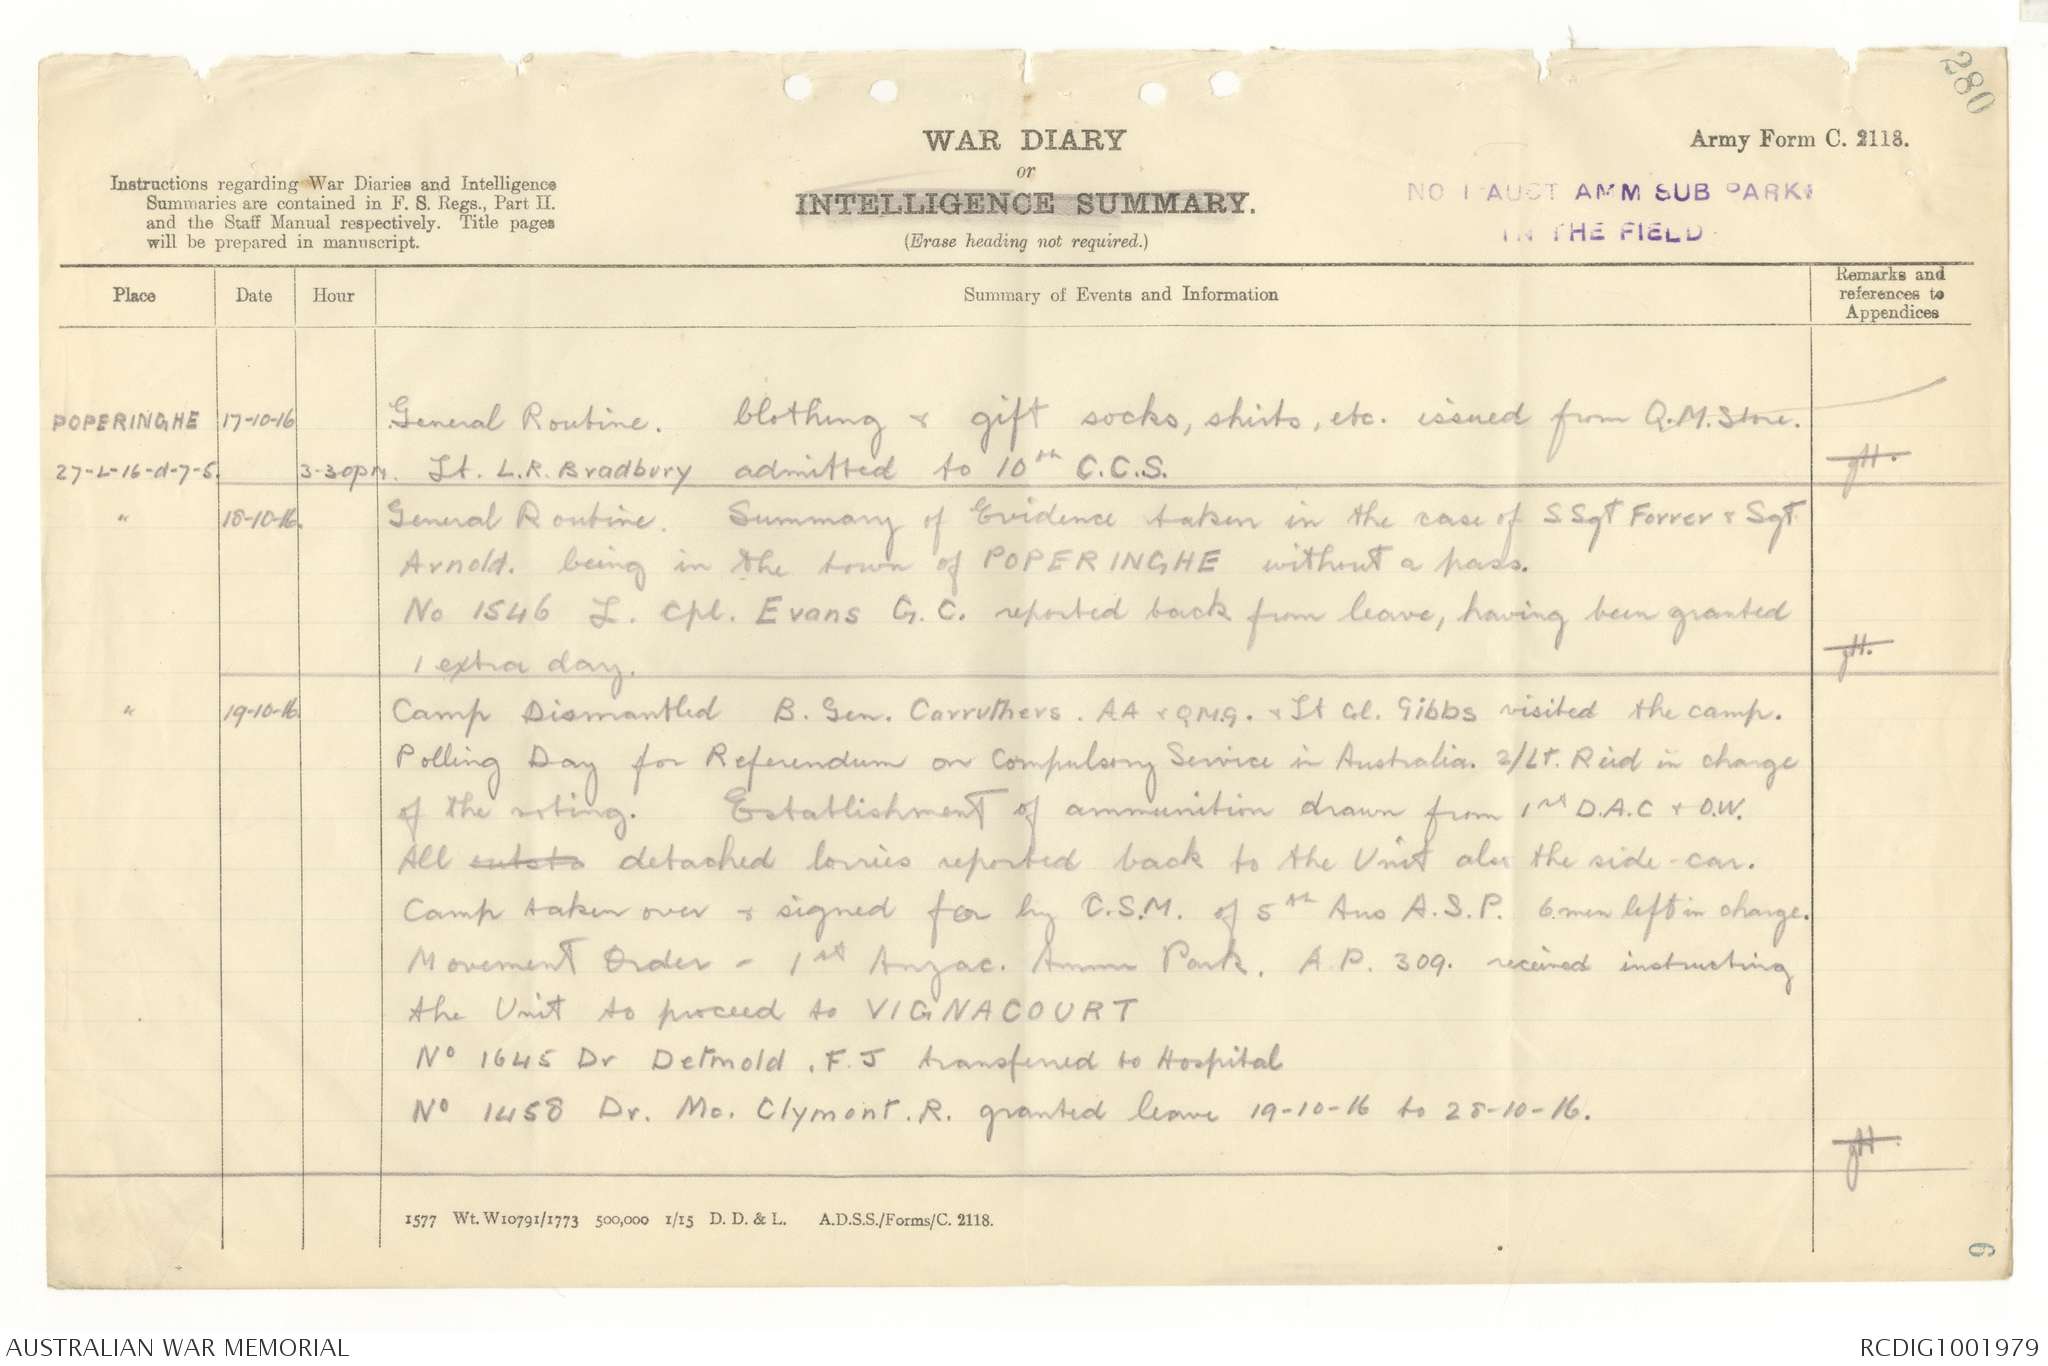 280
WAR DIARY
or
INTELLIGENCE SUMMARY.
(Erase heading not required.)
Army Form C. 2118.
Instructions regarding War Diaries and Intelligence
Summaries are contained in F. S. Regs., Part II.
and the Staff Manual respectively. Title pages
will be prepared in manuscript.
NO 1 AUST AMM SUB PARK
IN THE FIELD
Place Date Hour Summary of Events and Information Remarks and references to Appendices
POPERINGHE 17-10-16 General Routine. Clothing & gift socks, shirts, etc. issued from Q.M. Store.
27-L-16-d-7-5. 3-30pm. Lt. L.R. Bradbury admitted to 10th C.C.S.
" 18-10-16. General Routine. Summary of Evidence taken in the case of S Sgt Forrer & Sgt
Arnold. being in the town of POPERINGHE without a pass.
No 1546 L. Cpl. Evans G. C. reported back from leave, having been granted
1 extra day.
" 19-10-16 Camp Dismantled B. Gen. Carruthers. AA & QMG. & Lt Col. Gibbs visited the camp.
Polling Day for Referendum on Compulsory Service in Australia. 2/Lt. Reid in charge
of the voting. Establishment of ammunition drawn from 1st D.A.C & O.W.
All detached lorries reported back to the Unit also the side-car.
Camp taken over & signed for by C.S.M. of 5th Aus A.S.P. 6 men left in charge.
Movement Order - 1st Anzac. Ammn Park. A.P. 309. received instructing
the Unit to proceed to VIGNACOURT
No 1645 Dr Detmold. F. J transferred to Hospital
No 1458 Dr. Mc. Clymont. R. granted leave 19-10-16 to 28-10-16.
1577 Wt. W10791/1773 500,000 1/15 D. D. & L. A.D.S.S./Forms/C. 2118.
6
AUSTRALIAN WAR MEMORIAL
RCDIG1001979